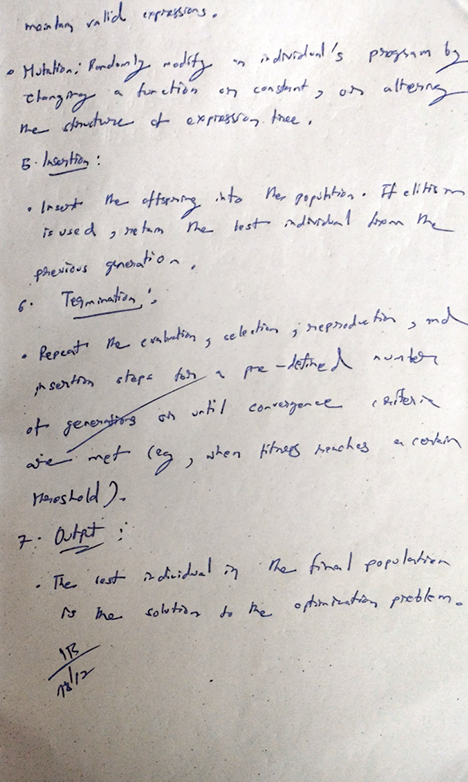 maintain valid expressions.
• Mutation: Randomly modify an individual's program by
changing a function or constant, or altering
the structure of expression tree.
5. Insertion:
• Insert the offspring into the population. If elitism
is used, retain the best individual from the
previous generation.
6. Termination:
• Repeat the evaluation, selection, reproduction, and
insertion steps for a pre-defined number
of generations or until convergence criteria
are met (eg, when fitness reaches a certain
threshold).
7. Output:
• The best individual in the final population
is the solution to the optimization problem.